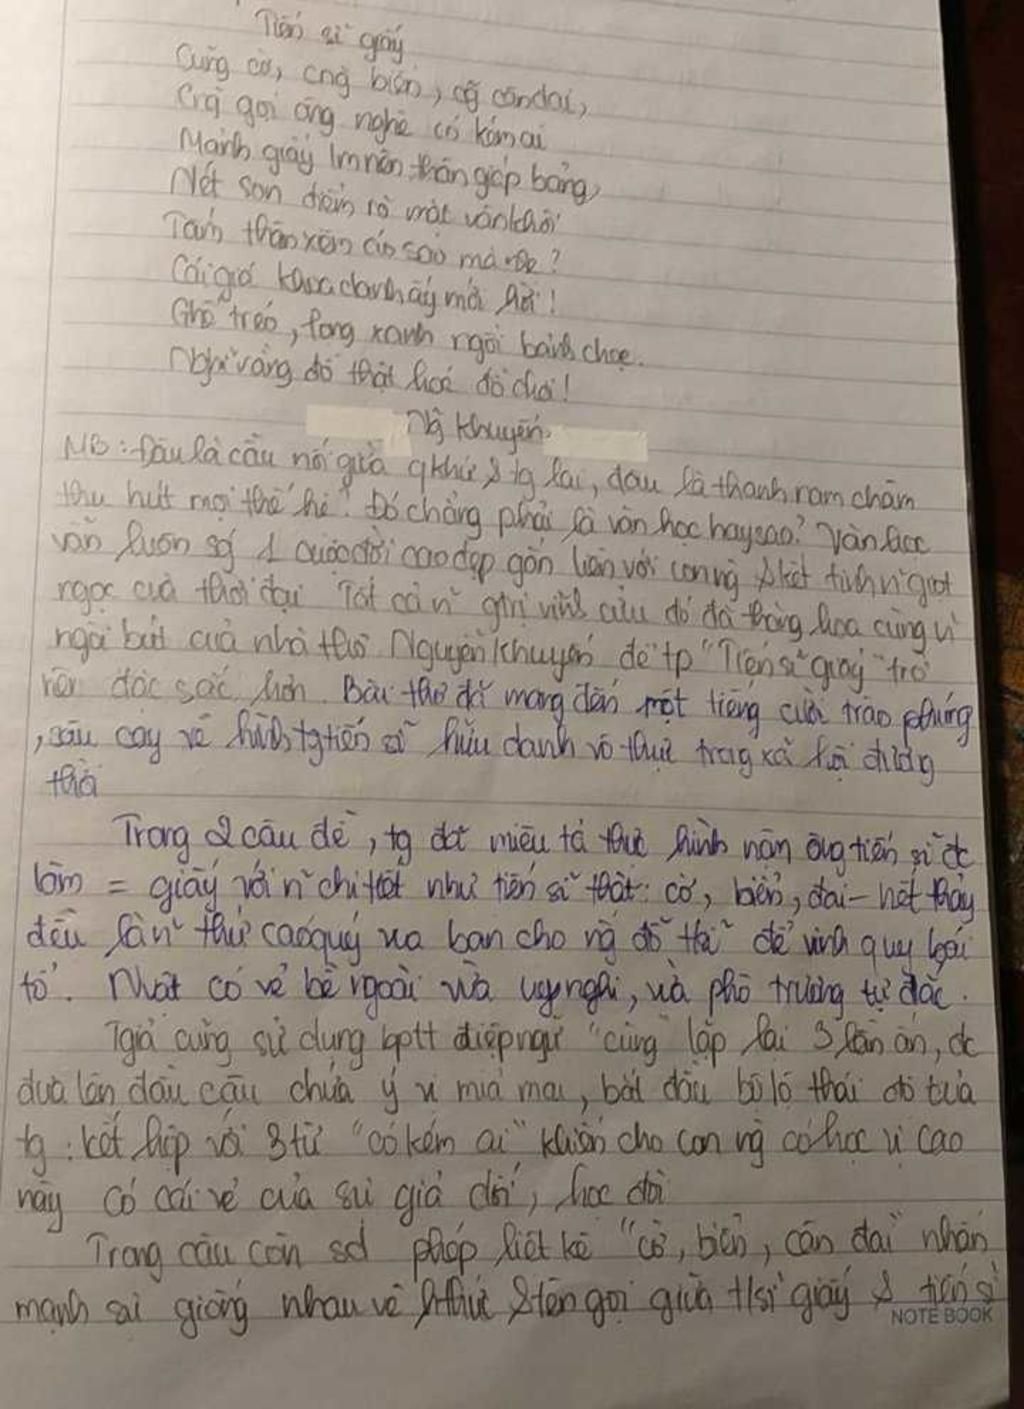 Tiến sĩ giấy
Cũng cờ, cng biển, cg cân đai,
Cg gọi ông nghè có kém ai
Mảnh giấy lm nên thân giáp bảng,
Nét son điểm rõ mặt văn khôi
Tấm thân xiêm áo sao mà nhẹ?
Cái giá khoa danh ấy mới hời!
Ghế tréo, lọng xanh ngồi bảnh choẹ.
Nghĩ rằng đồ thật hoá đồ chơi!
Ng Khuyến
MB: Đâu là cầu nối giữa qkhứ & tg lai, đâu là thanh nam châm
thu hút mọi thế hệ? Đó chẳng phải là văn học hay sao? Văn học
vẫn luôn số 1 cuộc đời cao đẹp gắn liền với con ng & kết tinh n~ giọt
ngọc của thời đại Tất cả n~ gtrị vĩnh cửu đó đã thăng hoa cùng vị
ngòi bút của nhà thơ Nguyễn Khuyến để tp "Tiến sĩ giấy" trở
nên đặc sắc hơn. Bài thơ đã mang đến một tiếng cười trào phúng
, sâu cay về hình tg tiến sĩ hữu danh vô thực trong xã hội đương
thời
Trong 2 câu đề, tg đã miêu tả thực hình nộm ông tiến sĩ đc
làm = giấy với n~ chi tiết như tiến sĩ thật: cờ, biển, đai - hết thảy
đều là n~ thứ cao quý vua ban cho ng đỗ thi để vinh quy bái
tổ. Nhất có vẻ bề ngoài vừa uy nghi, và phô trương tự đắc.
Tgiả cũng sử dụng bptt điệp ngữ "cũng" lặp lại 3 lần ấn, đc
đưa lên đầu câu chứa ý vị mỉa mai, bắt đầu bộ lộ thái độ của
tg: kết hợp với 3 từ "có kém ai" khiến cho con ng có học vị cao
này có cái vẻ của sự giả dối, học đòi
Trong câu còn sd phép liệt kê "cờ, biển, cân đai" nhấn
mạnh sự giống nhau về hthức & tên gọi giữa t/sĩ giấy & tiến sĩ
NOTE BOOK